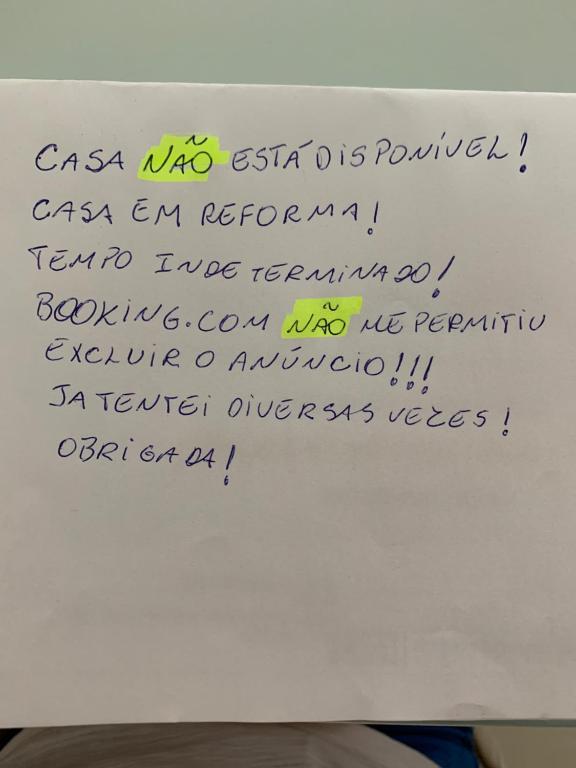 CASA NÃO ESTÁ DISPONÍVEL!
CASA EM REFORMA!
TEMPO INDETERMINADO!
BOOKING.COM NÃO ME PERMITIU
EXCLUIR O ANÚNCIO!!!
JA TENTEI DIVERSAS VEZES!
OBRIGADA!